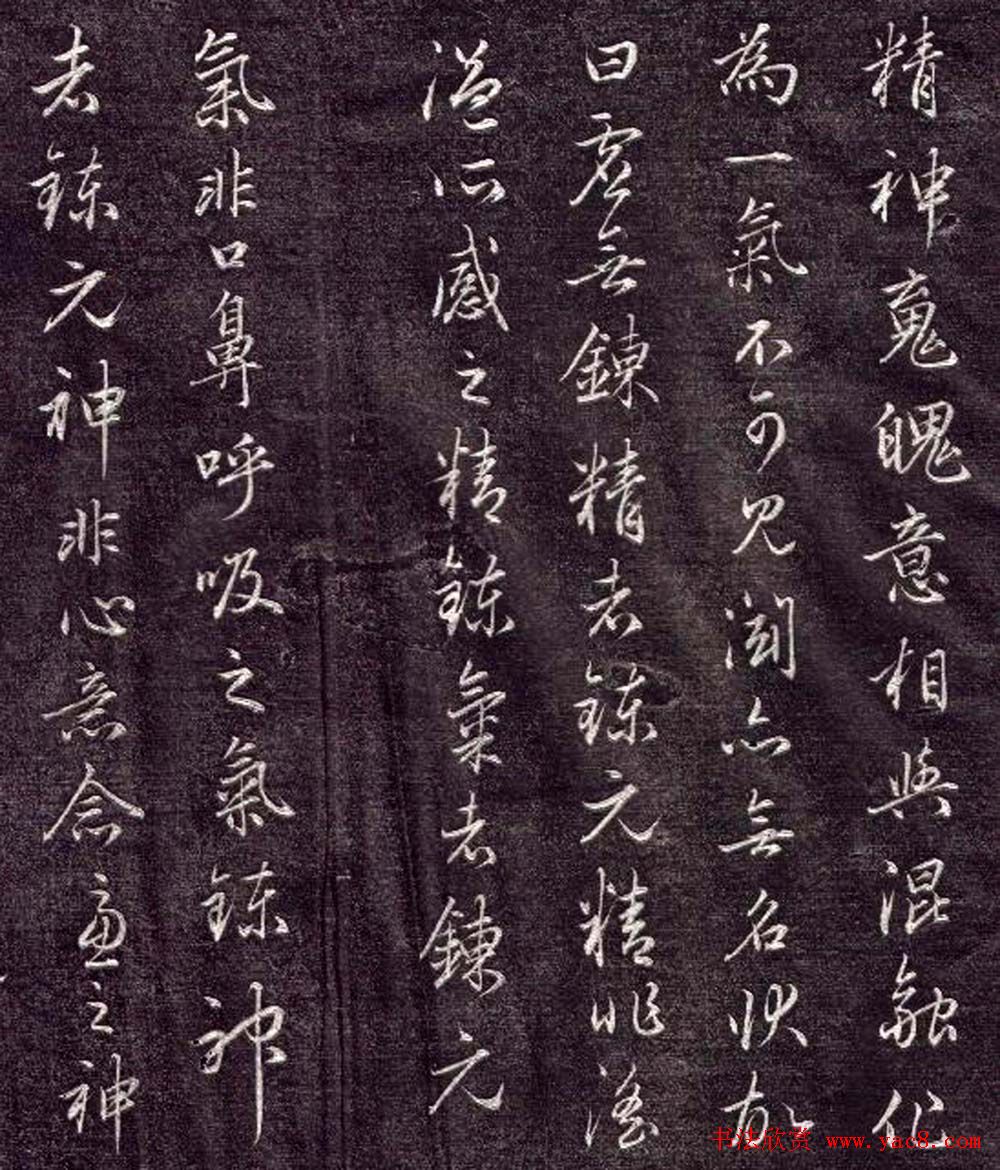 精神魂魄意相與混融化
為一氣不可見聞亦無名狀故
曰虛無鍊精者鍊元精非淫
溢所感之精鍊氣者鍊元
氣非口鼻呼吸之氣鍊神
者鍊元神非心意念慮之神
书法欣赏 www.yac8.com